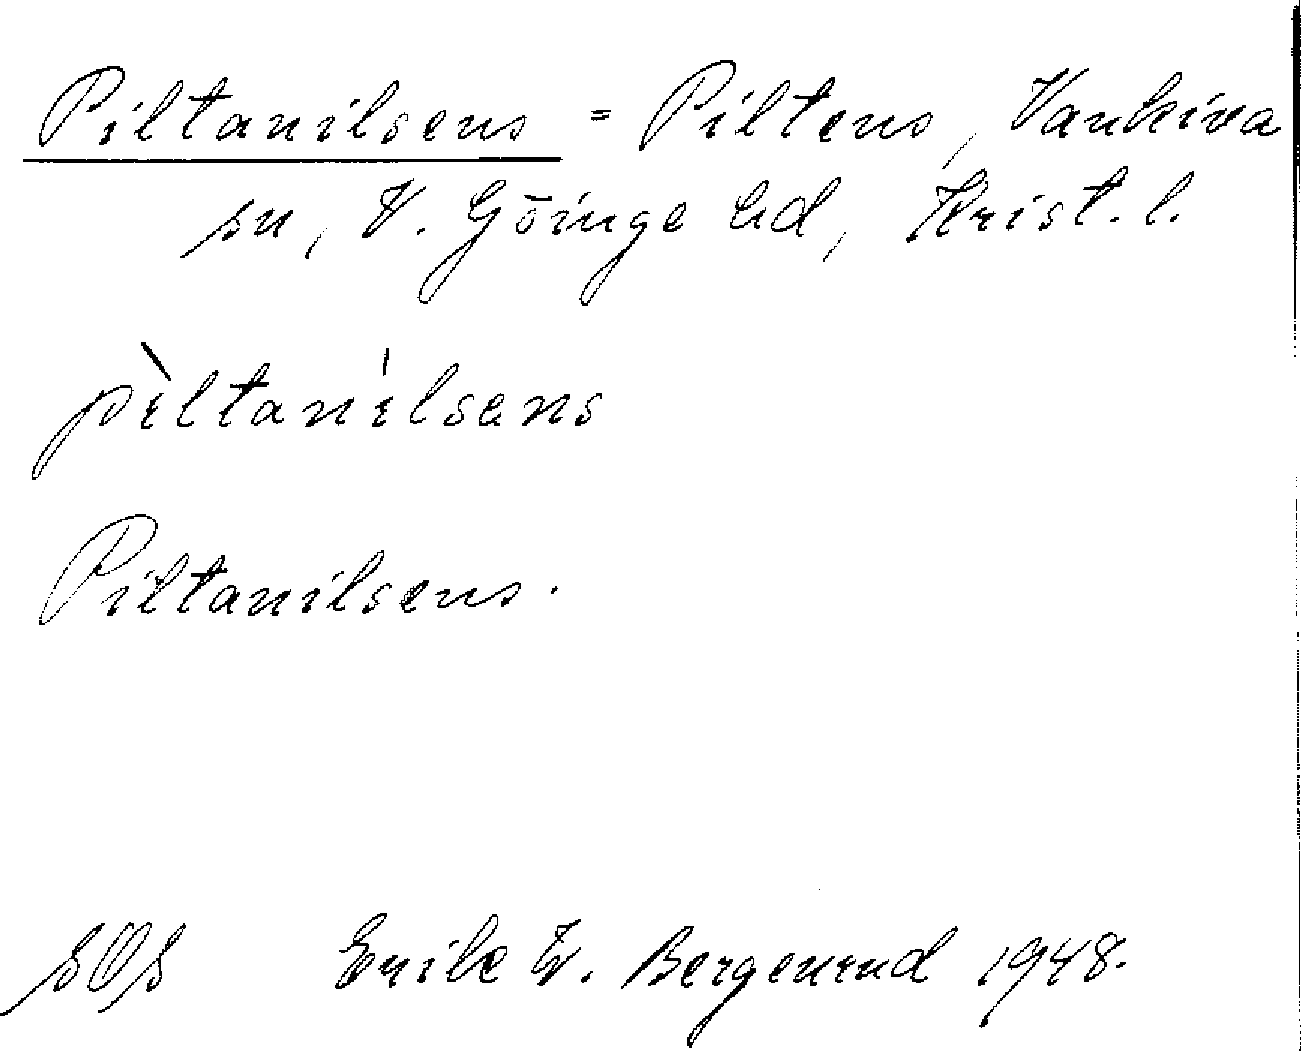 Piltanilsens = Piltens, Vankiva
sn, V. Göinge hd, Krist. l.
pìltanílsens
Piltanilsens.
sOs Erik W. Bergenrud 1948.